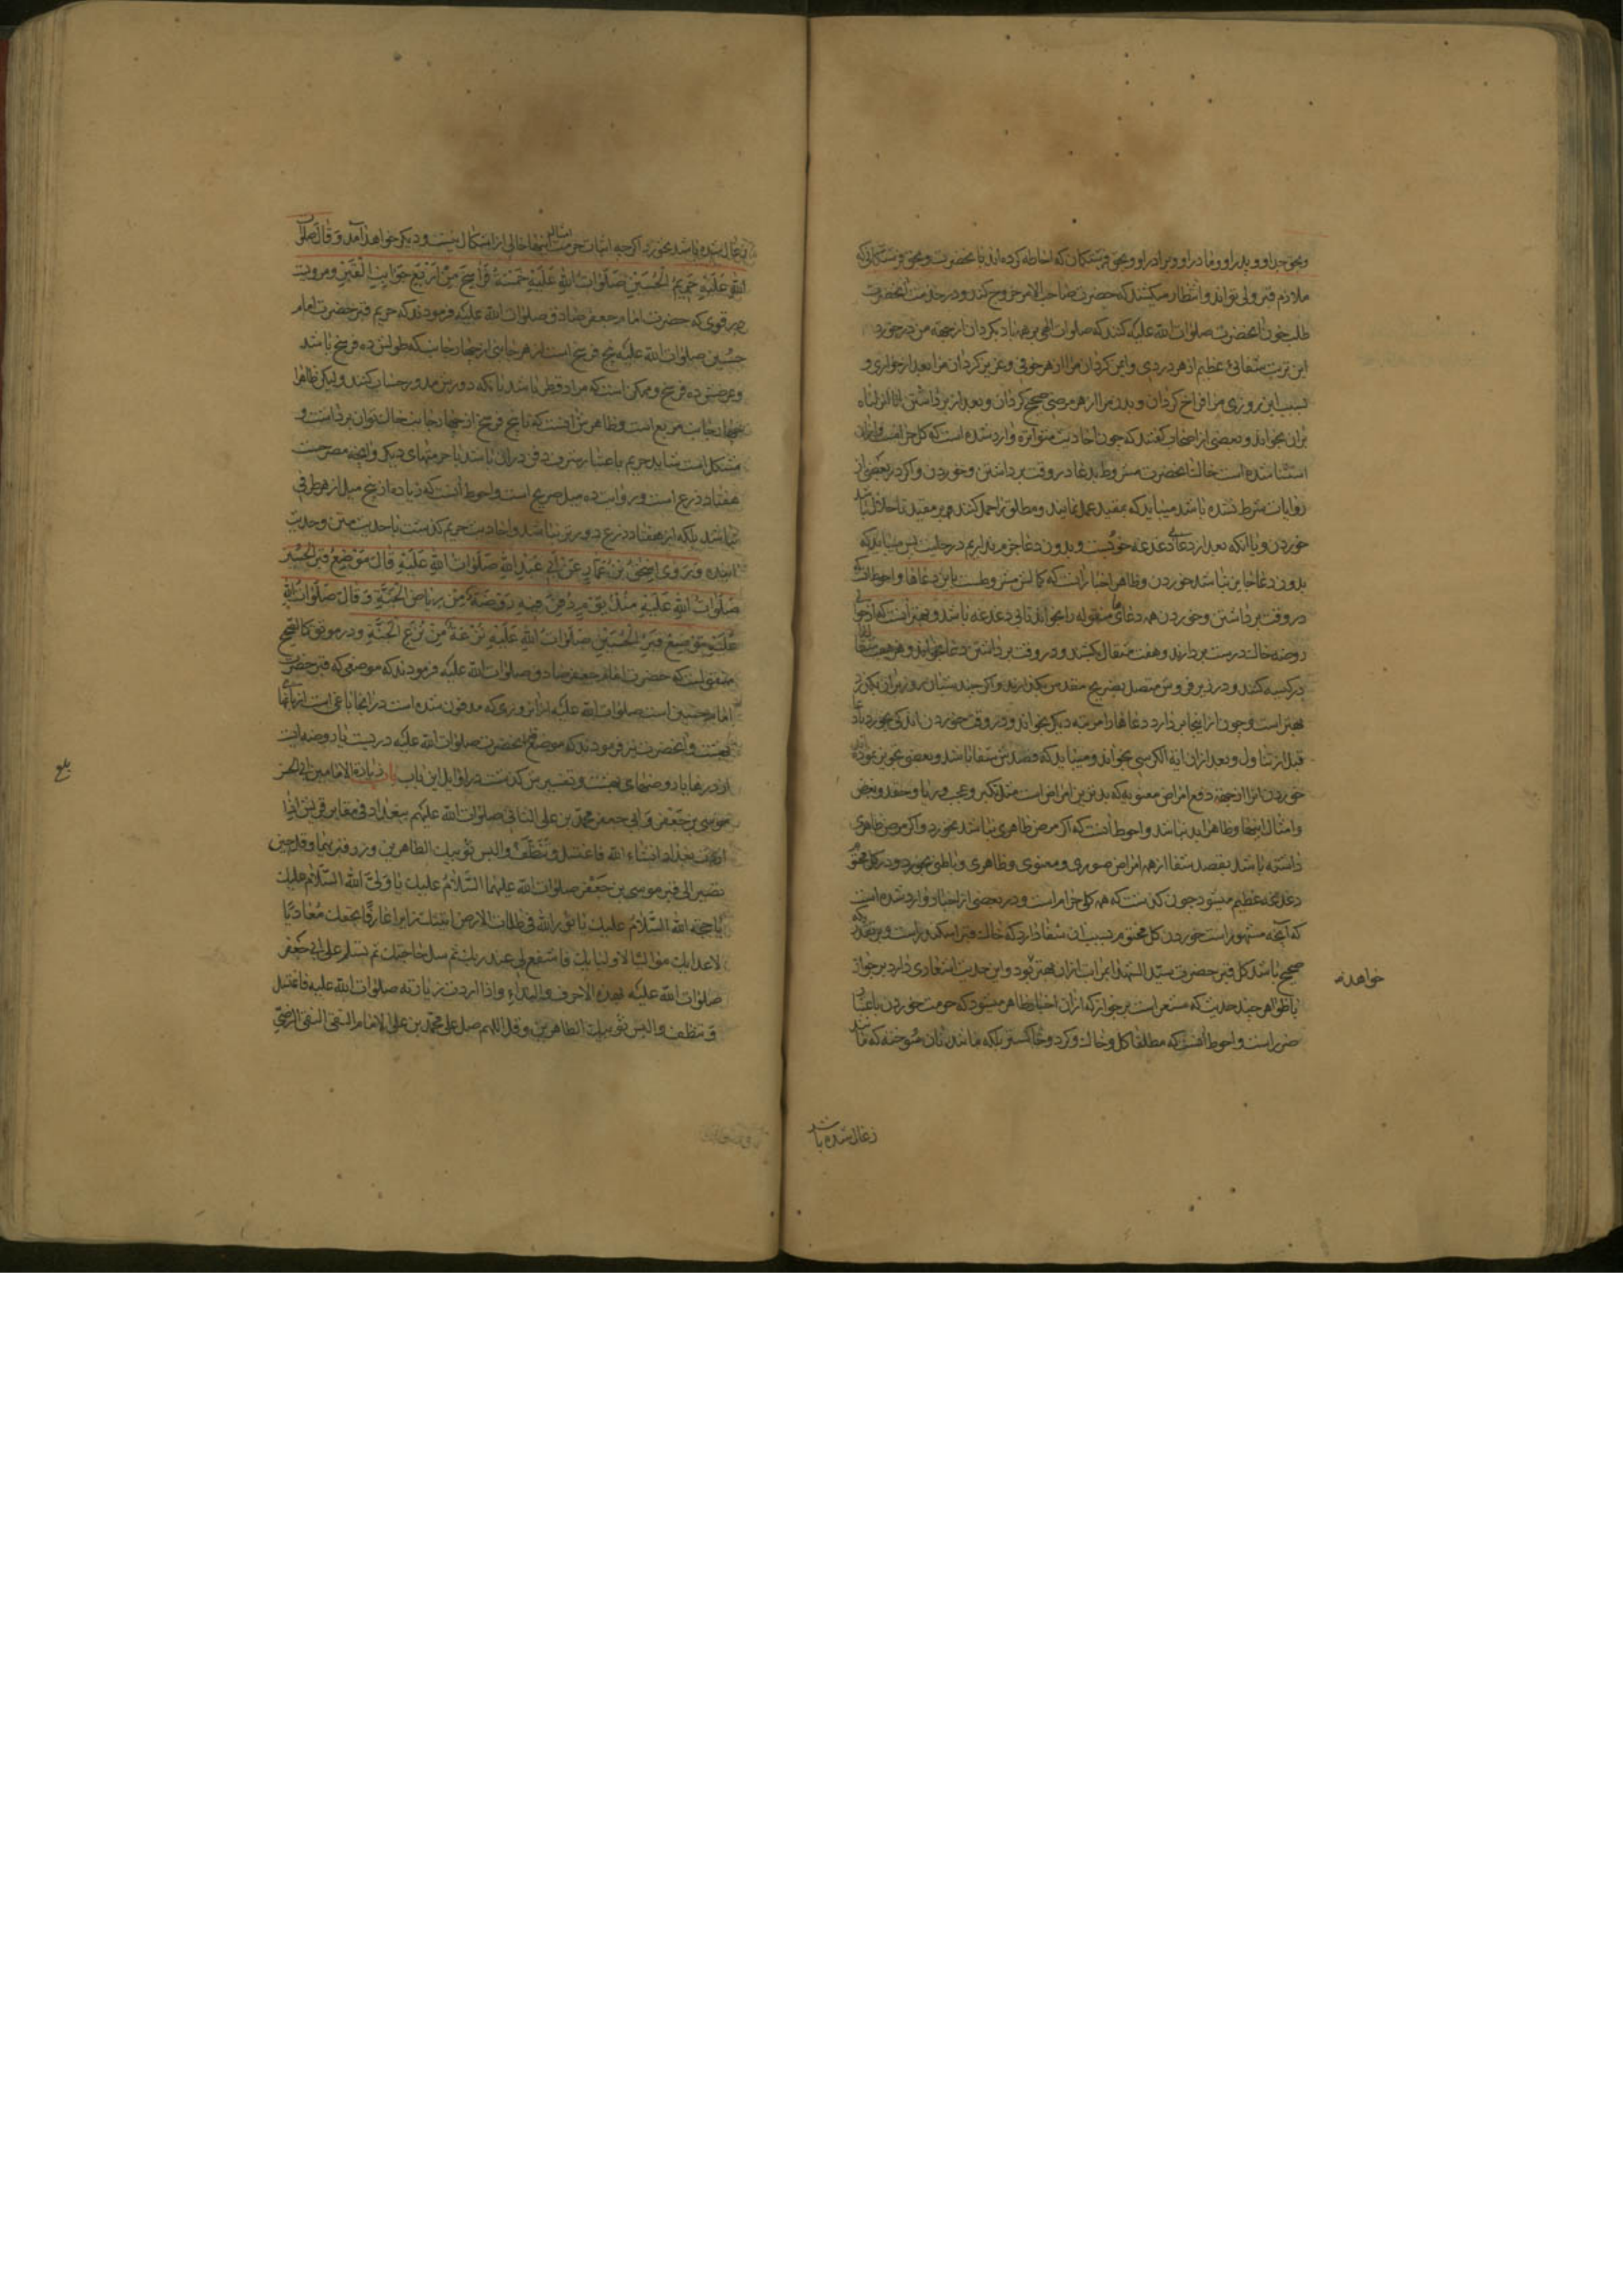 وبحق جد او و پدر او و مادر او و برادر او و بحق فرشتگان که احاطه کرده اند بآنحضرت و بحق فرشتگانی که
ملازم قبر ولی تواند و انتظار میکشند که حضرت صاحب الامر خروج کند و در خدمت آنحضرت
طلب خون آنحضرت صلوات الله علیه کنند که صلوات الهی بر همه باد بکردان از جهة من درخورد
این تربت شفائی عظیم از هر دردی و ایمن کردان مرا از هر خوفی و عزیز کردان مرا بعد از خواری و
بسبب این روزی مرا فراخ کردان و بدن مرا از هر مرضی صحیح کردان و بعد از برداشتن انا انزلناه
بران بخواند و بعضی از اصحاب گفتند که چون احادیث متواتره وارد شده است که گل حرامست و ازان
استثنا شده است خاک آنحضرت مشروط بدعا در وقت برداشتن و خوردن و اگر در بعضی از
روایات شرط نشده باشد میباید که بمقید عمل نمایند و مطلق را حمل کنند بر مقید تا حلال باشد
خوردن و با آنکه بعد از دعای دغدغه خود نیست و بدون دعا جزم نداریم در حلیت پس میباید که
بدون دعا جایز نباشد خوردن و ظاهر اخبار آنست که کمالش مشروطست باین دعاها و احوط آنست که
در وقت برداشتن و خوردن همه دعاهای منقوله را بخواند تا بی دغدغه باشد و بهتر آنست که از حوالی
روضه خاک درست بردارند و هفت مثقال بکشند و در وقت برداشتن دعا بخوانند و هر هفت مثقال را
در کیسه کنند و در زیر فروش متصل بضریح مقدس بگذارند و اگر چند شبان روز بران بگذرد
بهتر است و چون از اینجا بردارد دعاها را مرتبه دیگر بخواند و در وقت خوردن اندکی بخورد با دعا
قبل از تناول و بعد ازان آیة الکرسی بخواند و میباید که قصدش شفا باشد و بعضی تجویز نموده اند
خوردن آنرا از جهة دفع امراض معنویه که بدترین امراض است مثل تکبر و عجب و ریا و حقد و بغض
و امثال اینها و ظاهرا بد نباشد و احوط آنست که اگر مرض ظاهری نباشد نخورد و اگر مرض ظاهری
داشته باشد بقصد شفا از همه امراض صوری و معنوی و ظاهری و باطنی بخورد و در گل مختوم
دغدغه عظیم میشود چون گذشت که همه گلی حرام است و در بعضی از اخبار وارد شده است
که آنچه مشهور است خوردن گل مختوم بسبب آن شفا دارد که خاک قبر اسکندر است و بر تقدیری که
صحیح باشد گل قبر حضرت سید الشهدا بمراتب ازان بهتر بود و این حدیث اشعاری دارد بر جواز
با ظواهر چند حدیث که مشعر است بر جواز که ازان اخبار ظاهر میشود که حرمت خوردن باعتبار
ضرر است و احوط آنست که مطلقا گل و خاک و گرد و خاکستر بلکه مانند نان سوخته که مانند
خواهد
زغال شده باشد
زغال شده باشد نخورد اگرچه اثبات حرمت امثال اینها خالی از اشکال نیست و دیگر خواهد آمد وَ قالَ صلوات
اللهِ عَلَیْهِ حَرِیمُ الْحُسَیْنِ صَلَواتُ اللهِ عَلَیْهِ خَمْسَةُ فَراسِخَ مِنْ اَرْبَعِ جَوانِبِ الْقَبْرِ و مرویست
در قوی که حضرت امام جعفر صادق صلوات الله علیه فرمودند که حریم قبر حضرت امام
حسین صلوات الله علیه پنج فرسخ است از هر جانبی از چهار جانب که طولش ده فرسخ باشد
و عرضش ده فرسخ و ممکن است که مراد قطر باشد بآنکه دورش مدور حساب کنند ولیکن ظاهرا
چهار جانب مربع است و ظاهرش آنست که تا پنج فرسخ از چهار جانب خاک توان برداشت و
مشکل است شاید حریم باعتبار شرف دفن دران باشد یا حرمتهای دیگر و آنچه مصرحست
هفتاد ذرع است و روایت ده میل صریح است و احوط آنست که زیاده از پنج میل از هر طرفی
نباشد بلکه از هفتاد ذرع دورتر نباشد و احادیث حریم گذشت با حدیث متن و حدیث
آینده وَ رَوی اِسْحقُ بْنُ عَمّارٍ عَنْ اَبی عَبْدِ اللهِ صَلَواتُ اللهِ عَلَیْهِ قالَ مَوْضِعُ قَبْرِ الْحُسَیْنِ
صَلَواتُ اللهِ عَلَیْهِ مُنْذُ یَوْمِ دُفِنَ فِیهِ رَوْضَةٌ مِنْ رِیاضِ الْجَنَّةِ وَ قالَ صَلَواتُ اللهِ
عَلَیْهِ مَوْضِعُ قَبْرِ الْحُسَیْنِ صَلَواتُ اللهِ عَلَیْهِ تُرْعَةٌ مِنْ تُرَعِ الْجَنَّةِ و در موثق کالصحیح
منقولست که حضرت امام جعفر صادق صلوات الله علیه فرمودند که موضعی که قبر حضرت
امام حسین است صلوات الله علیه از آن روزی که مدفون شده است در آنجا باغی است از باغهای
بهشت و آنحضرت نیز فرمودند که موضع قبر آنحضرت صلوات الله علیه دریست یا روضه ایست
از درها یا روضهای بهشت و تفسیرش گذشت در اوایل این باب باب زیارة الامامین ابی الحسن
موسی بن جعفر و ابی جعفر محمد بن علی الثانی صلوات الله علیهم ببغداد فی مقابر قریش اذا
اردت بغداد انشاء الله فاغتسل و تنظف و البس ثوبیک الطاهرین و زر قبریهما و قل حین
تصیر الی قبر موسی بن جعفر صلوات الله علیهما السلام علیک یا ولیّ الله السلام علیک
یا حجة الله السلام علیک یا نور الله فی ظلمات الارض اتیتک زایرا عارفا بحقک معادیا
لاعدایک موالیا لاولیایک فاشفع لی عند ربک ثم سل حاجتک ثم تسلم علی ابی جعفر
صلوات الله علیه بهذه الاحرف و البداء و اذا اردت زیارته صلوات الله علیه فاغتسل
و تنظف و البس ثوبیک الطاهرین و قل اللهم صل علی محمد بن علی الامام التقی النقی الرضیّ
بلغ